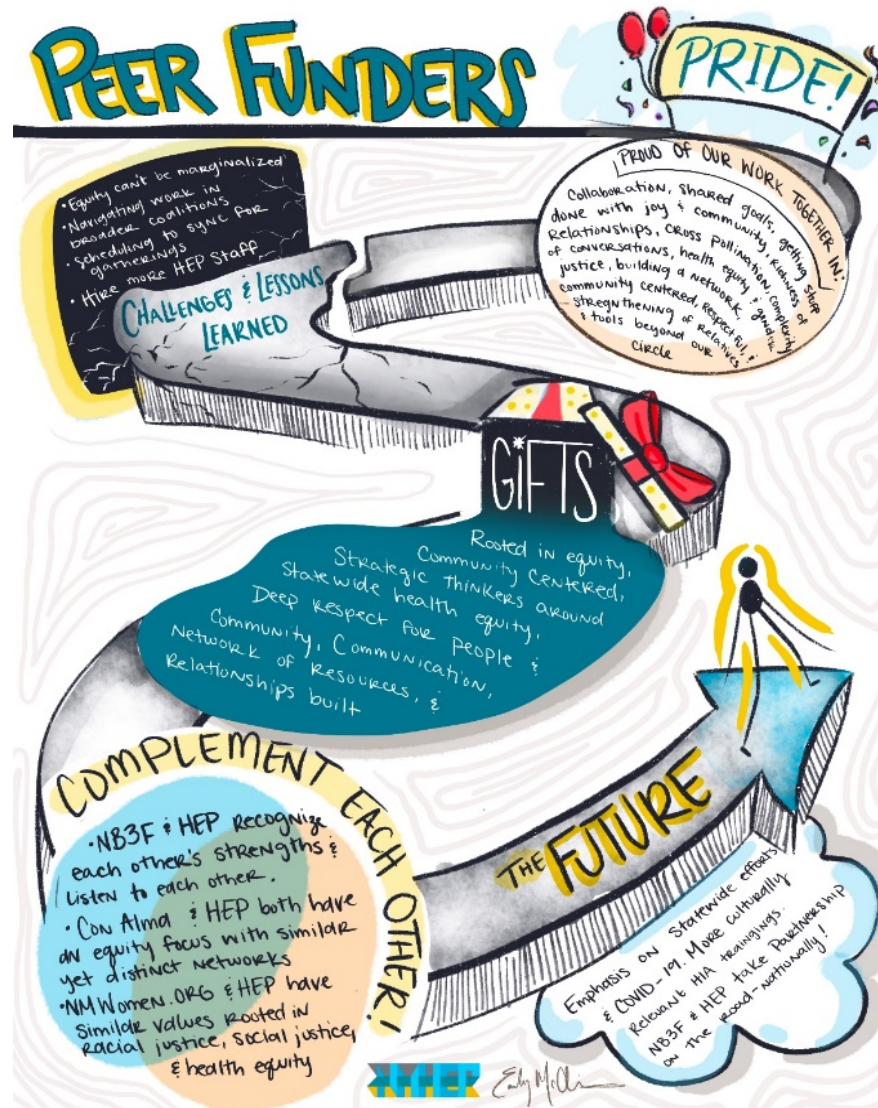 PEER FUNDERS
PRIDE!
• Equity can't be marginalized
• Navigating work in
broader coalitions
• Scheduling to sync for
gatherings
• Hire more HEP Staff
CHALLENGES & LESSONS
LEARNED
PROUD OF OUR WORK TOGETHER IN:
Collaboration, shared goals, getting stuff
done with joy & community, Richness of
Relationships, cross pollination, complexity
of conversations, health equity & gender
justice, building a network,
community centered, respectful, &
stregnthening of Relatives
& tools beyond our
circle
GIFTS
Rooted in equity,
Community Centered,
Strategic Thinkers around
Statewide health equity,
Deep Respect for people &
Community, Communication,
Network of Resources, &
Relationships built
COMPLEMENT EACH OTHER!
• NB3F & HEP Recognize
each other's strengths &
Listen to each other.
• Con Alma & HEP both have
an equity focus with similar
yet distinct networks
• NMWomen.ORG & HEP have
similar values Rooted in
Racial justice, social justice,
& health equity
THE FUTURE
Emphasis on Statewide efforts
& COVID-19. More culturally
Relevant HIA traingings.
NB3F & HEP take Partnership
on the road-nationally!